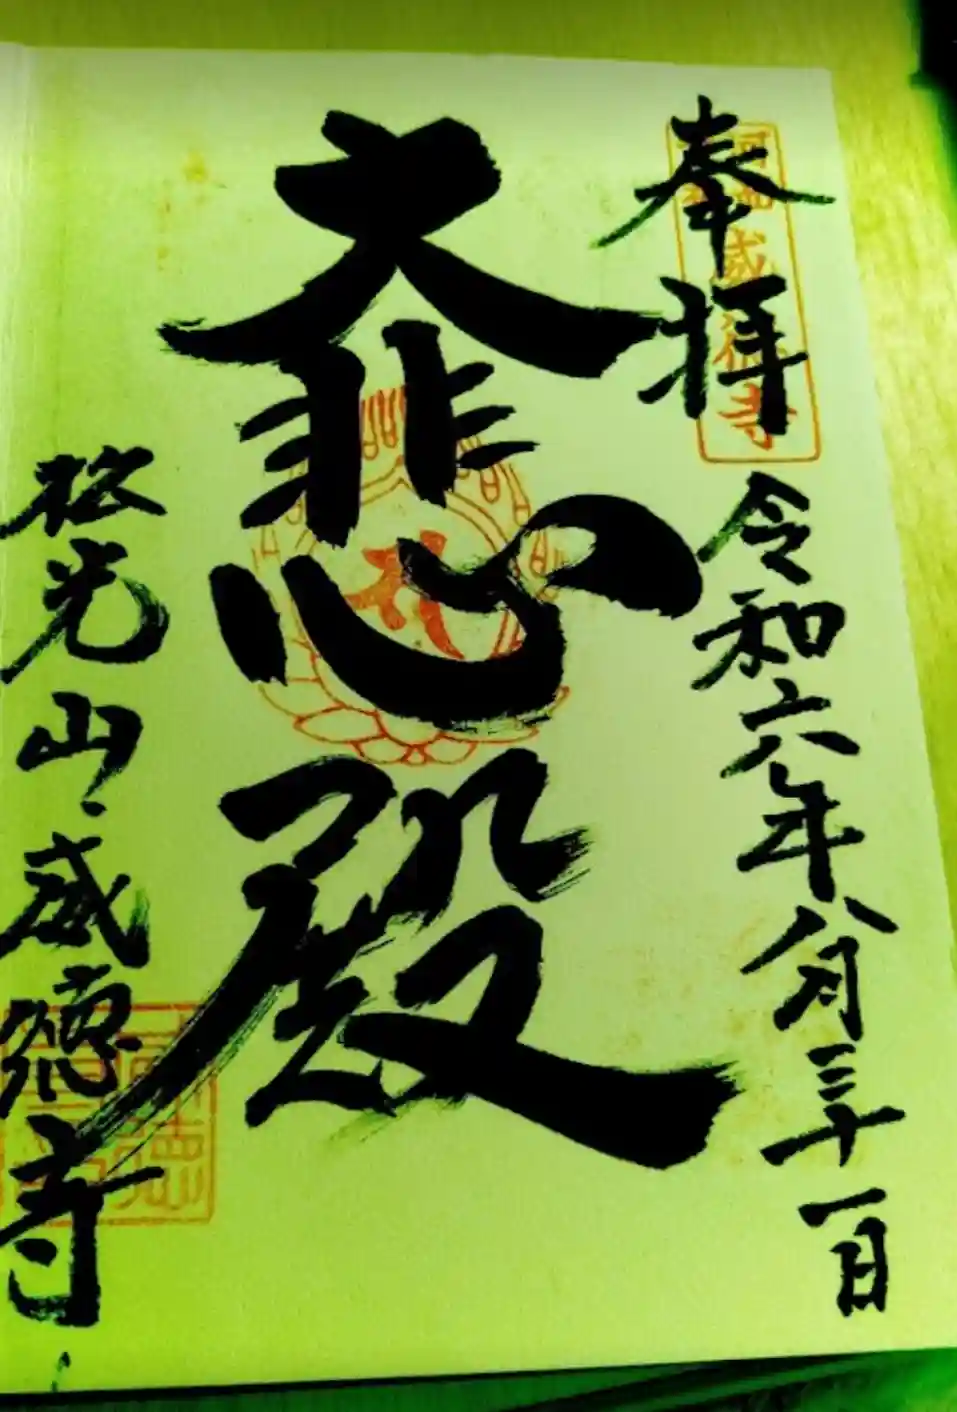 奉拝
令和六年八月三十一日
大悲殿
松光山
威徳寺
威徳寺